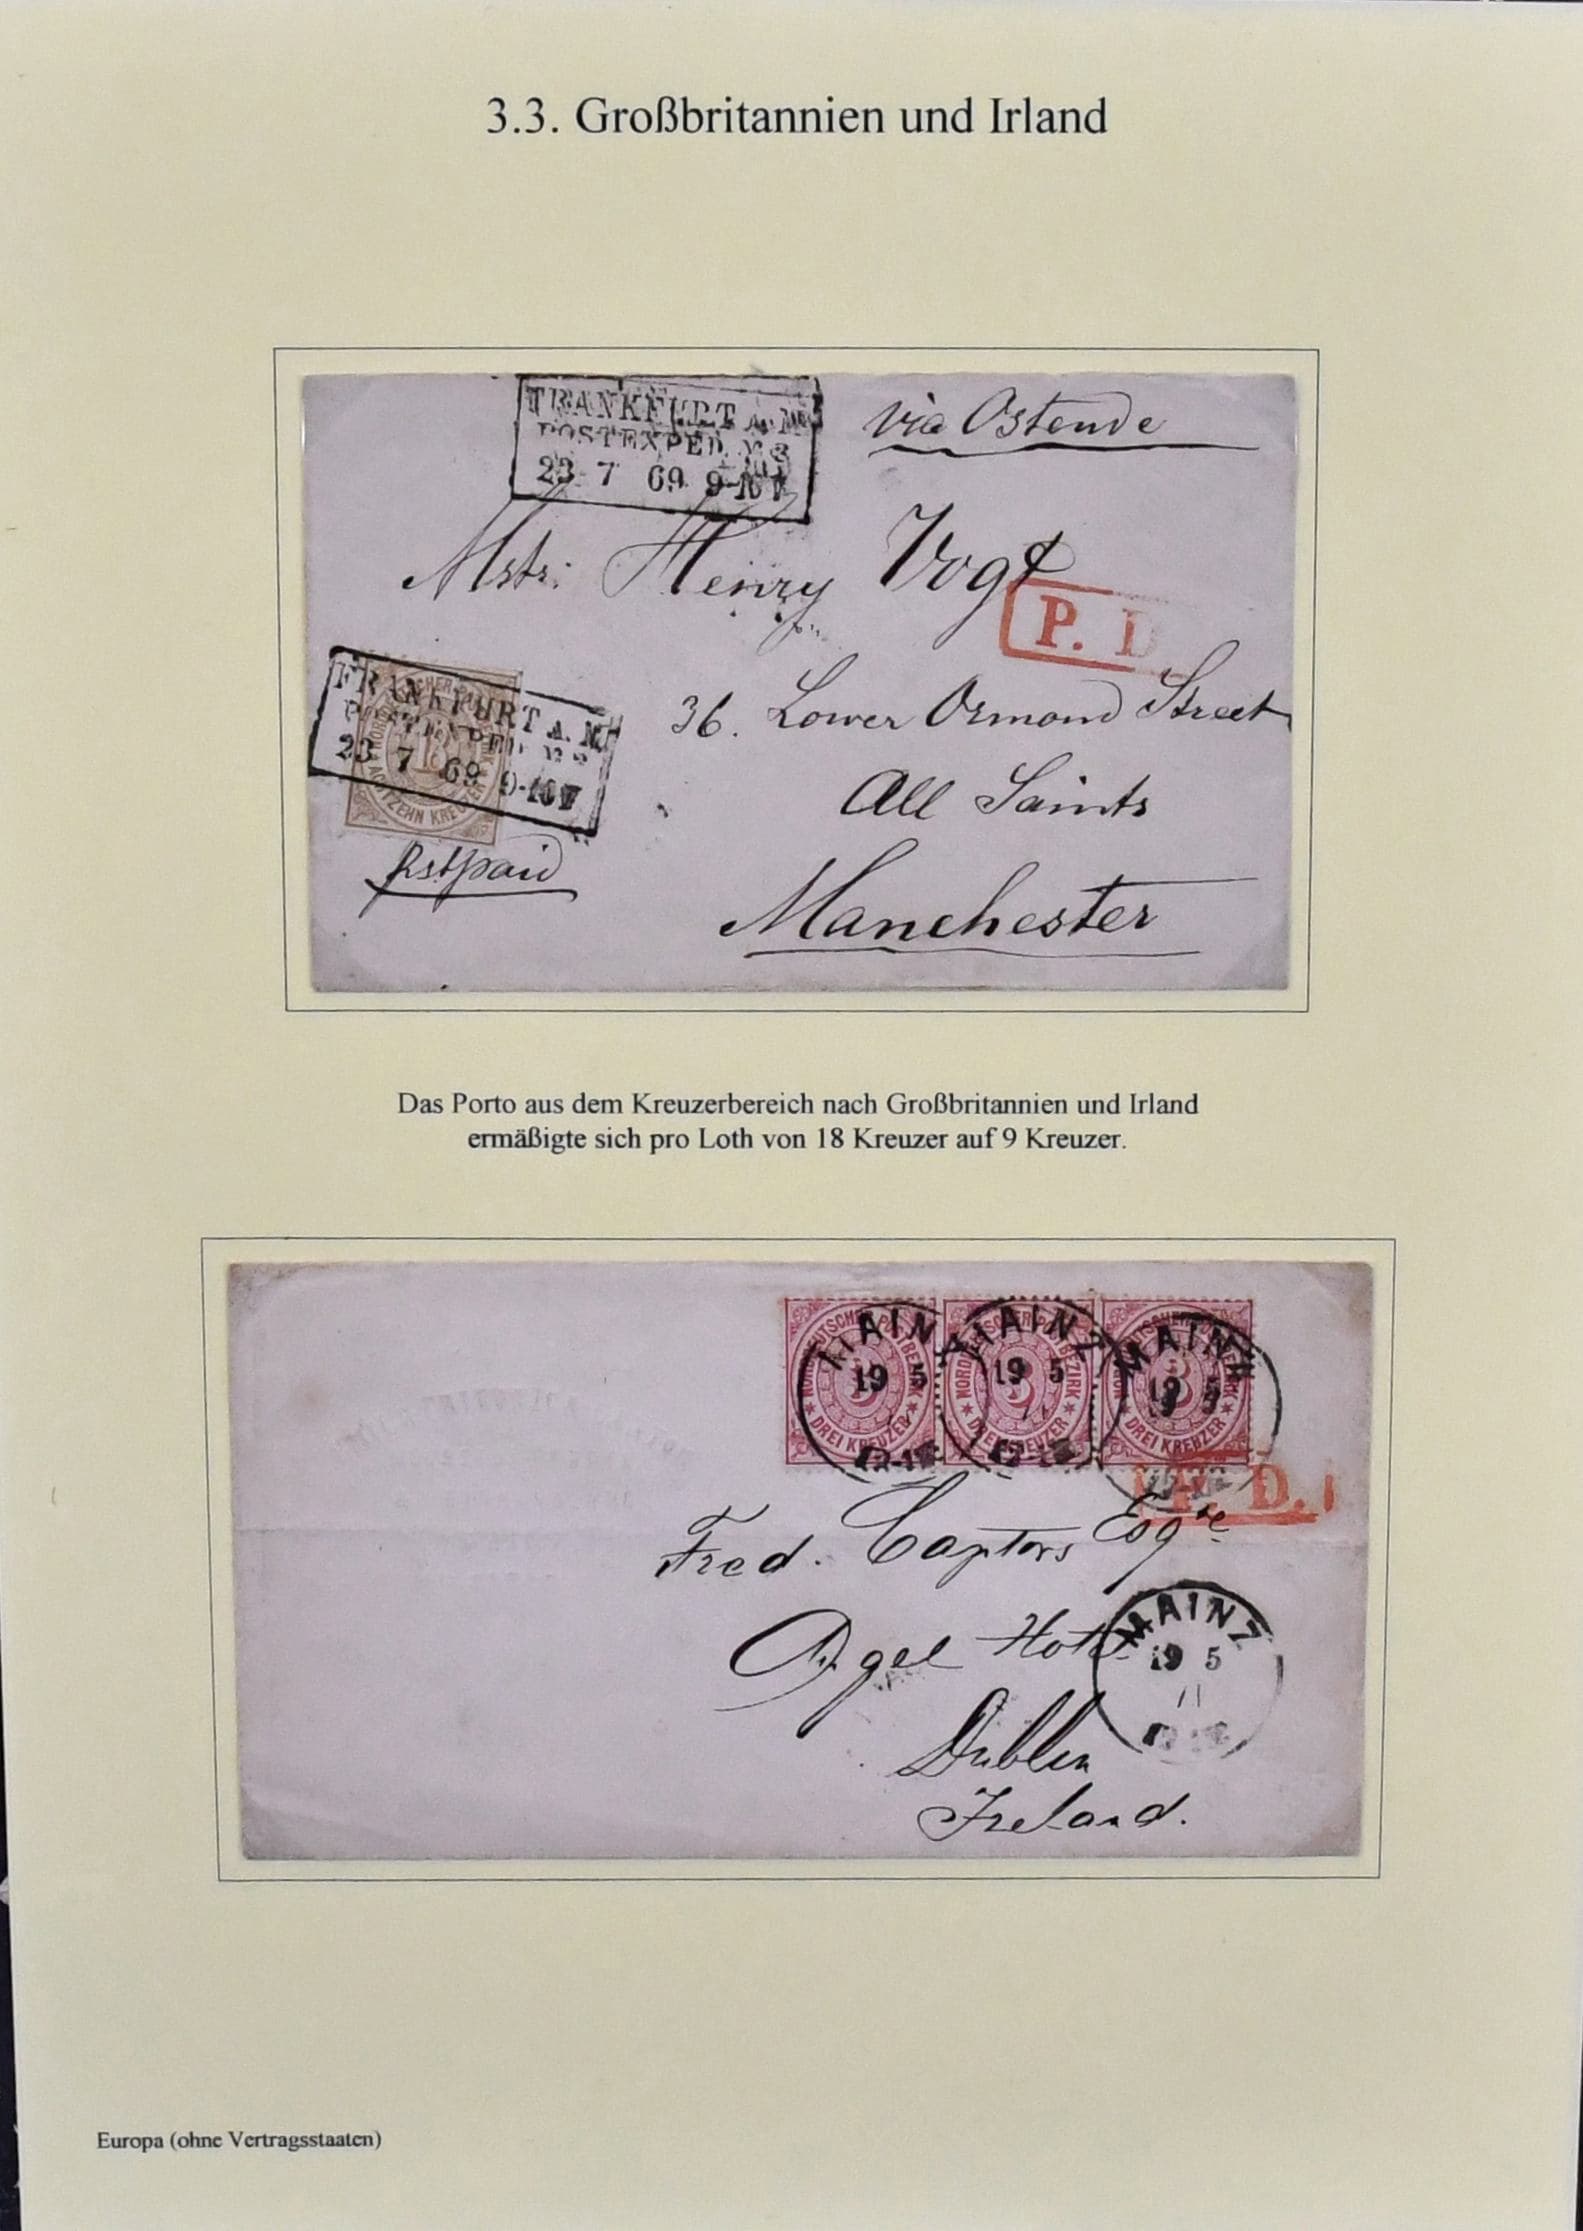 3.3. Großbritannien und Irland
FRANKFURT A. M.
POSTEXPED. No 3
23 7 69 9-10 V
via Ostende
Mstr: Henry Vogt
P. D
FRANKFURT A. M.
POSTEXPED
23 7 69 9-10 V
NORDDEUTSCHER POSTBEZIRK
18
ACHTZEHN KREUZER
36. Lower Ormond Street
All Saints
Manchester
Postpaid
Das Porto aus dem Kreuzerbereich nach Großbritannien und Irland
ermäßigte sich pro Loth von 18 Kreuzer auf 9 Kreuzer.
NORDDEUTSCHER POSTBEZIRK
3
DREI KREUZER
MAINZ
19 5
NORDDEUTSCHER POSTBEZIRK
3
DREI KREUZER
MAINZ
19 5
NORDDEUTSCHER POSTBEZIRK
3
DREI KREUZER
MAINZ
19 5
P. D.
Fred. Esqre
Hotel
MAINZ
19 5
71
Dublin
Ireland.
Europa (ohne Vertragsstaaten)